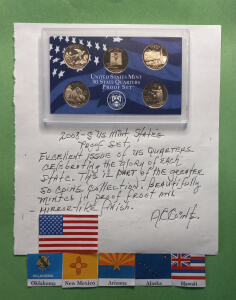 UNITED STATES MINT
50 STATE QUARTERS
PROOF SET
2008-S US MINT STATES
PROOF SET.
EXCELLENT ISSUE OF US QUARTERS
CELEBRATING THE GLORY OF EACH
STATE. THIS IS PART OF THE GREATER
50 COINS COLLECTION. BEAUTIFULLY
MINTED IN PROOF FROST AND
MIRROR-LIKE FINISH.
Oklahoma
New Mexico
Arizona
Alaska
Hawaii